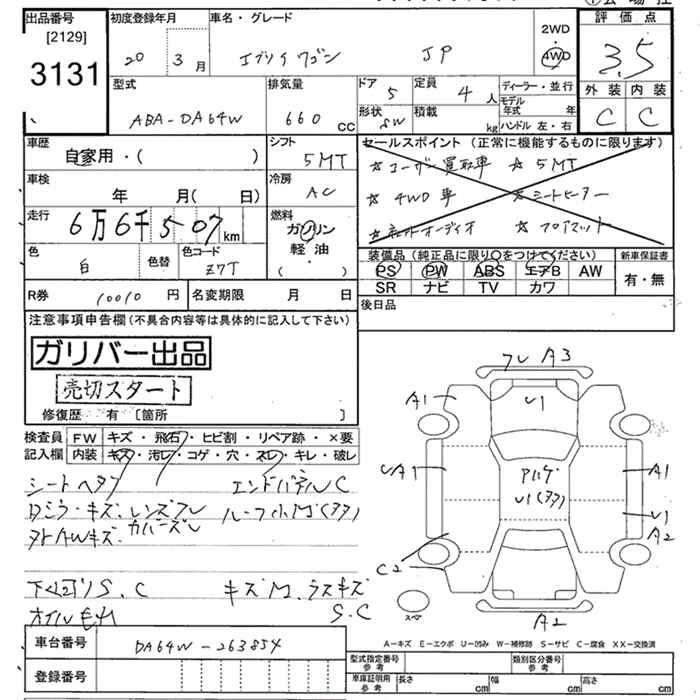 出品番号 初度登録年月 車名・グレード 2WD 評価点
[2129]
3131 20 3月 エブリイワゴン JP 4WD 3.5
型式 排気量 ドア 5 定員 4人 ディーラー・並行 外装 内装
モデル年式 年
ABA-DA64W 660cc 形状 SW 積載 kg ハンドル 左・右 C C
車歴 シフト セールスポイント (正常に機能するものに限ります)
自家用・( ) 5MT ☆ユーザー買取車 ☆5MT
車検 冷房
年 月( 日) AC ☆4WD車 ☆シートヒーター
走行 燃料
6万6千507km ガソリン ☆社外オーディオ ☆フロアマット
軽・油
・( )
色 色替 色コード
白 Z7T
装備品 (純正品に限り○をつけてください) 新車保証書
PS PW ABS エアB AW 有・無
SR ナビ TV カワ
R券 10010円 名変期限 月 日 後日品
注意事項申告欄(不具合内容等は具体的に記入して下さい)
ガリバー出品
売切スタート
修復歴 有 [箇所 ]
検査員記入欄 FW キズ・飛石・ヒビ割・リペア跡・×要
内装 キズ・汚レ・コゲ・穴・スレ・キレ・破レ
シートヘタリ エンドパネルC
Dミラーキズ. レンズスレ ルーフ小M(ヌケ)
カバーズレ
ヌトAWキズ.
下回りS.C キズM.ラスキズ
オイルモレ S.C
フレ A3
A1 U1
UA1 Pハゲ A1
U1(ヌケ) U1
A2
C2
スペア A2
A－キズ E－エクボ U－凹み W－補修跡 S－サビ C－腐食 XX－交換済
車台番号 DA64W-263854
登録番号
型式指定番号 参考 類別区分番号 参考
車庫証明用 参考 長さ cm 幅 cm 高さ cm